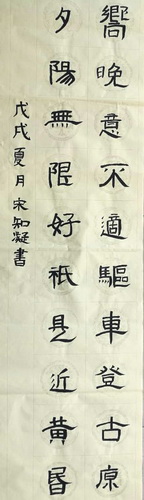 嚮晚意不適驅車登古原
夕陽無限好祇是近黃昏
戊戌夏月宋知凝書